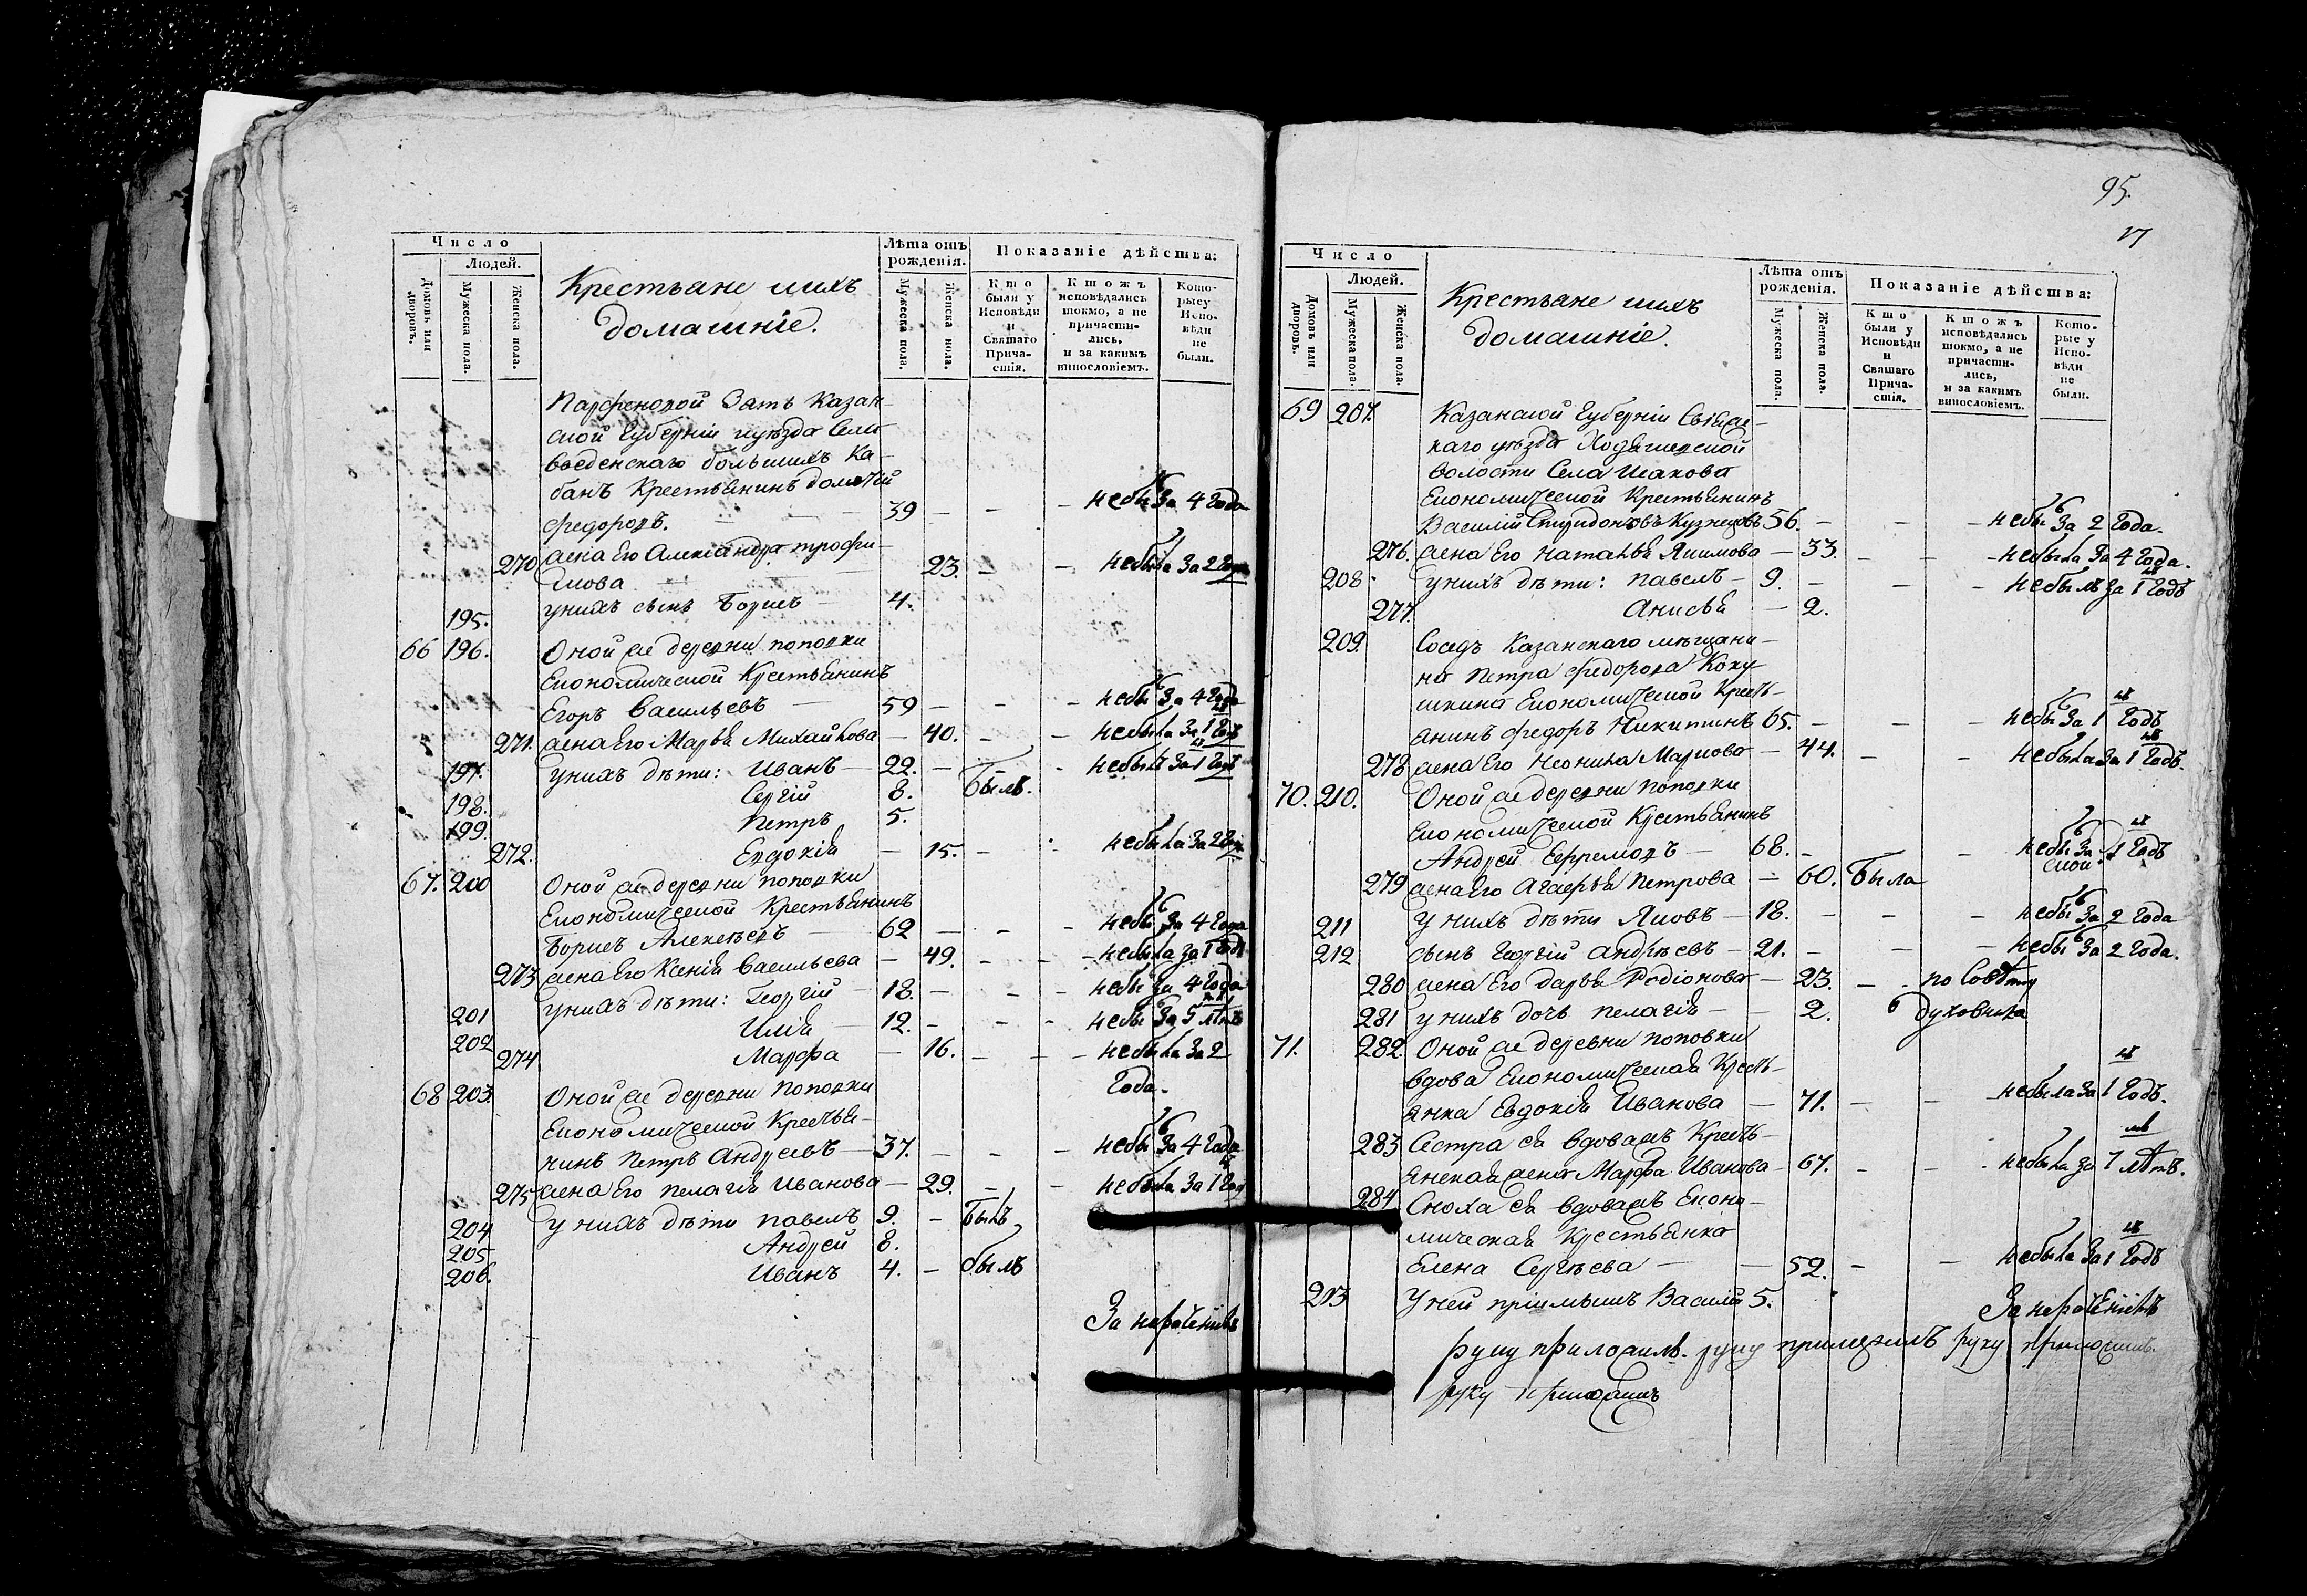 Число
Людей.
Домовъ или дворовъ.
Мужеска пола.
Женска пола.
Крестьяне ииxъ
домашніе.
Лѣта отъ
рожденія.
Мужеска пола.
Женска пола.
Показаніе дѣйства:
Кто
были у
Исповѣди
и
Святаго
Прича-
стія.
Ктожъ
исповѣдались
токмо, а не
причасти-
лись,
и за какимъ
винословіемъ.
Кото-
рые у
Испо-
вѣди
не
были.
Парфеновой Зять Казан-
ской Губерніи иуѣзда Села
введенскаго большихъ Ка-
банъ Крестьянинъ
федоровъ. 39 - - - небы За 4 Года
270 жена Его Александра трофи-
мова 23. - - небыла За 2 Года
195. унихъ сынъ Борисъ 4.
66 196. Оной же деревни поповки
Економической Крестьянинъ
Егоръ Васильевъ 59 - - - небы За 4 Года
271. жена Его Марья Михайлова - 40. - - небыла За 1 Годъ
197. унихъ дѣти: Иванъ - 22. - - небылъ За 1 Годъ
198. Сергій 8. Былъ.
199. Петръ 5.
272. Евдокія - 15. - - небыла За 2 Года
67. 200 Оной же деревни поповки
Економической Крестьянинъ
Борисъ Алексѣевъ 62 - - - небы За 4 Года
273 жена Его Ксенія Васильева - 49. - - - небыла За 1 Годъ
201 унихъ дѣти: Георгій - 18. - - - небы За 4 Года
202 Илія - 12. - - - небы За 5 лѣтъ
274 Марфа - 16. - - - небыла За 2
Года.
68 203. Оной же деревни Поповки
Економической Крестья-
нинъ Петръ Андреевъ - 37. - - - небы За 4 Года
275 жена Его Пелагія Иванова - 29. - - небыла За 1 Год
204 у нихъ дѣти павелъ 9. - Былъ
205 Андрей 8.
206. Иванъ 4. - былъ
За нераченіемъ
95.
17
Число
Людей.
Домовъ или дворовъ.
Мужеска пола.
Женска пола.
Крестьяне ииxъ
домашніе.
Лѣта отъ
рожденія.
Мужеска пола.
Женска пола.
Показаніе дѣйства:
Кто
были у
Исповѣди
и
Святаго
Прича-
стія.
Ктожъ
исповѣдались
токмо, а не
причасти-
лись,
и за какимъ
винословіемъ.
Кото-
рые у
Испо-
вѣди
не
были.
69 207. Казанской Губерніи Свіяж-
каго уѣзда Ходяшевской
волости Села Исакова
Економической Крестьянинъ
Василій Спиридоновъ Кузнецовъ 56. - - - небы За 2 Года.
276. жена Его Наталья Якимова - 33. - - - небыла За 4 Года.
208. унихъ дѣти: павелъ - 9. - - - небылъ За 1 Годъ
277. Анисья - 2.
209. Соседъ Казанскаго мѣщани-
на Петра федорова Коку-
шкина Економической Кресть-
янинъ федоръ Никитинъ 65. - - - небы За 1 Годъ
278 жена Его Неонила Маркова - 44. - - небыла За 1 Годъ.
70. 210. Оной же деревни поповки
Економической Крестьянинъ
Андрей Ефремовъ - 68. - - - небы За 1 Годъ
279 жена Его Агафья Петрова - 60. Была
211 У нихъ дѣти Яковъ - 18. - - - небы За 2 Года
212 сынъ Георгій Андреевъ - 21. - - - небы За 2 Года.
280 жена Его дарья Родіонова - 23. - - по Совѣту
281 у нихъ дочь пелагія - - 2. духовника
71. 282. Оной же деревни поповки
вдова Економическая Кресть-
янка Евдокія Иванова - 71. - - - небыла За 1 Годъ.
283 Сестра ея вдова жъ Кресть-
янская жена Марфа Иванова - 67. - - - небыла За 7 лѣтъ.
284 Сноха ея вдова жъ Еконо-
мическая Крестьянка
Елена Сергѣева - - 52. - - небыла За 1 Годъ
213 У ней пріимышъ Василій 5. За нераченіемъ
руку приложилъ. руку приложилъ руку приложилъ.
руку приложилъ